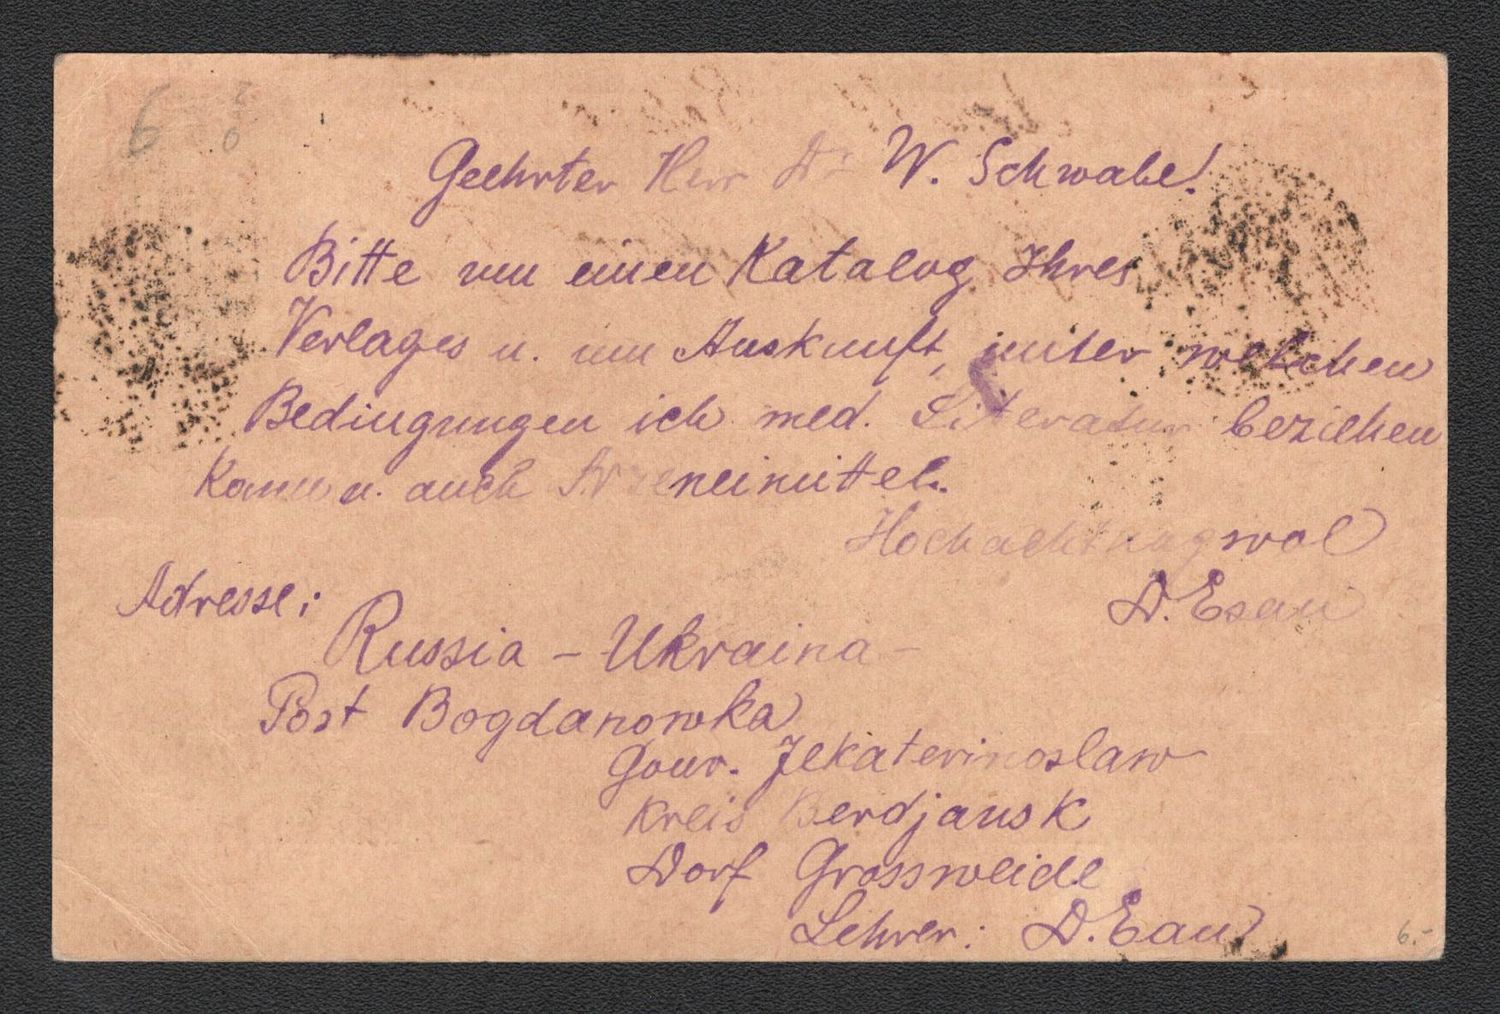 6
Geehrter Herr Dr W. Schwabe!
Bitte um einen Katalog Ihres
Verlages u. um Auskunft, unter welchen
Bedingungen ich med. Literatur beziehen
kann u. auch Arzneimittel.
Hochachtungswol
D. Esau
Adresse:
Russia – Ukraina –
Post Bogdanowka
Gouv. Jekaterinoslaw
Kreis Berdjansk
Dorf Grossweide
Lehrer: D. Esau
6.-